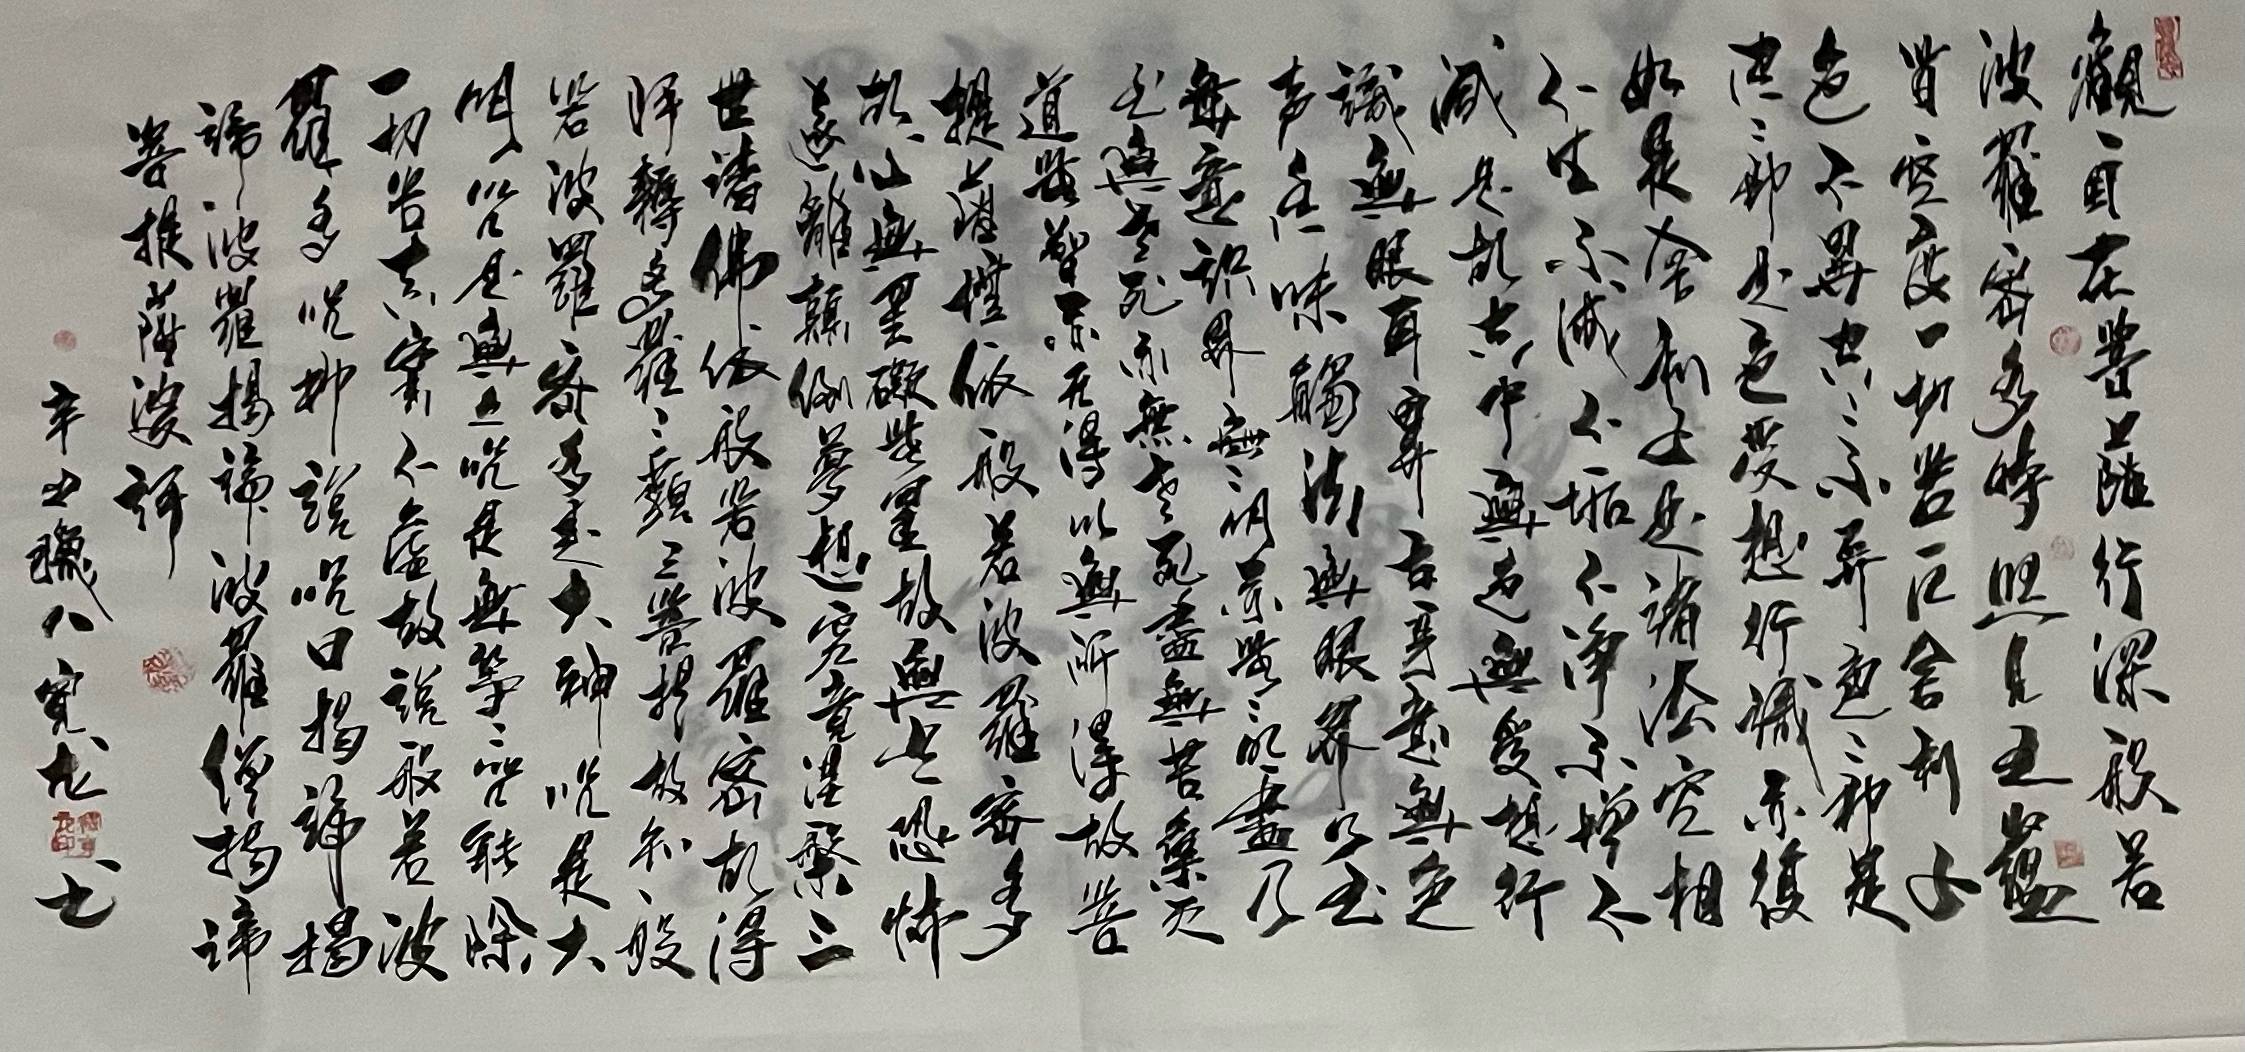 觀自在菩薩行深般若
波羅密多時照見五蘊
皆空度一切苦厄舍利子
色不異空〻不异色〻即是
空〻即是色受想行識亦復
如是舍利子是諸法空相
不生不滅不垢不净不增不
減是故空中無色無受想行
識無眼耳鼻舌身意無色
声香味觸法無眼界乃至
無意识界無〻明亦無〻明盡乃
至無老死亦無老死盡無苦集灭
道無智亦无得以無所得故菩
提薩埵依般若波羅密多
故心無罣礙無罣故無有恐怖
遠離顛倒夢想究竟涅槃三
世諸佛依般若波羅密故得
阿耨多羅〻藐三菩提故知般
若波羅密多是大神咒是大
明咒是無上咒是無等〻咒能除
一切苦真實不虛故說般若波
羅多咒即說咒曰揭諦揭
諦波羅揭諦波羅僧揭諦
菩提薩婆訶
辛丑臘八寬龙书